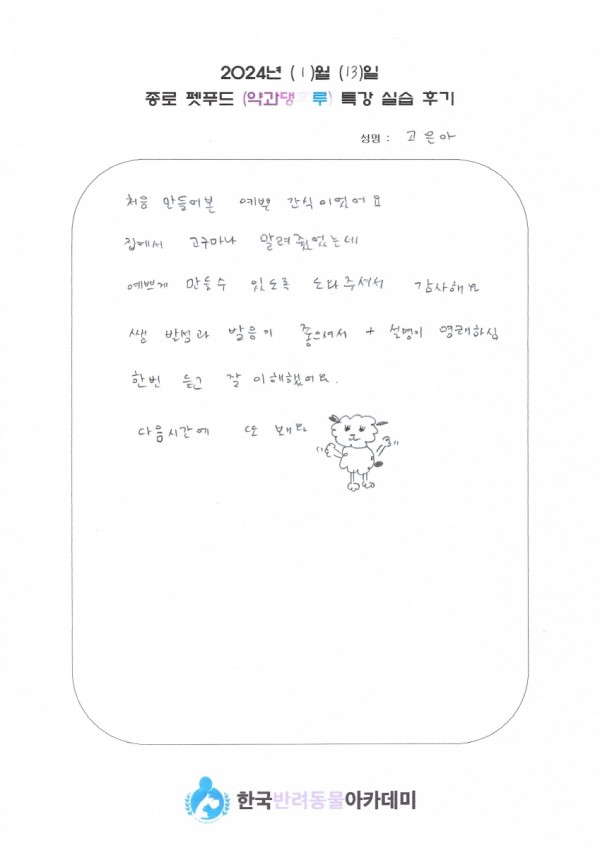 2024년 (1)월 (13)일
종로 펫푸드 (약과댕후루) 특강 실습 후기
성명 : 고은아
처음 만들어본 예쁜 간식이었어요
집에서 고구마나 말려줬었는데
예쁘게 만들수 있도록 도와주셔서 감사해요
쌤 발성과 발음이 좋으셔서 + 설명이 명쾌하심
한번 듣고 잘 이해했어요.
다음시간에 또 봬요
한국반려동물아카데미